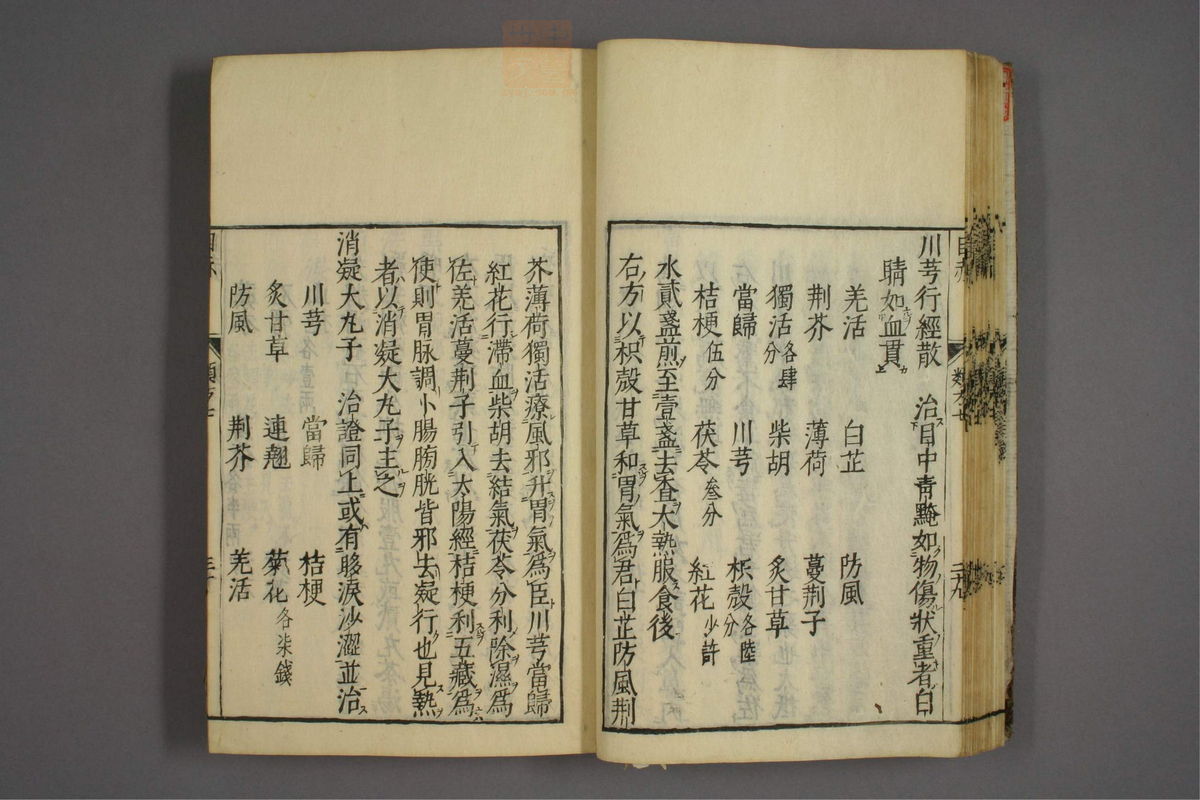 川芎行經散　治目中青黯如物傷狀重者白
睛如血貫
羌活　白芷　防風
荆芥　薄荷　蔓荆子
獨活各肆分　柴胡　炙甘草
當歸　川芎　枳殻各陸分
桔梗伍分　茯苓叁分　紅花少許
水貳盞煎至壹盞去査大熱服食後
右方以枳殻甘草和胃氣爲君白芷防風荆
芥薄荷獨活療風邪升胃氣爲臣川芎當歸
紅花行滯血柴胡去結氣茯苓分利除濕爲
佐羌活蔓荆子引入太陽經桔梗利五藏爲
使則胃脉調小腸膀胱皆邪去凝行也見熱
者以消凝大九子主之
消凝大九子　治證同上或有眵淚沙澀並治
川芎　當歸　桔梗
炙甘草　連翹　菊花各柒錢
防風　荆芥　羌活